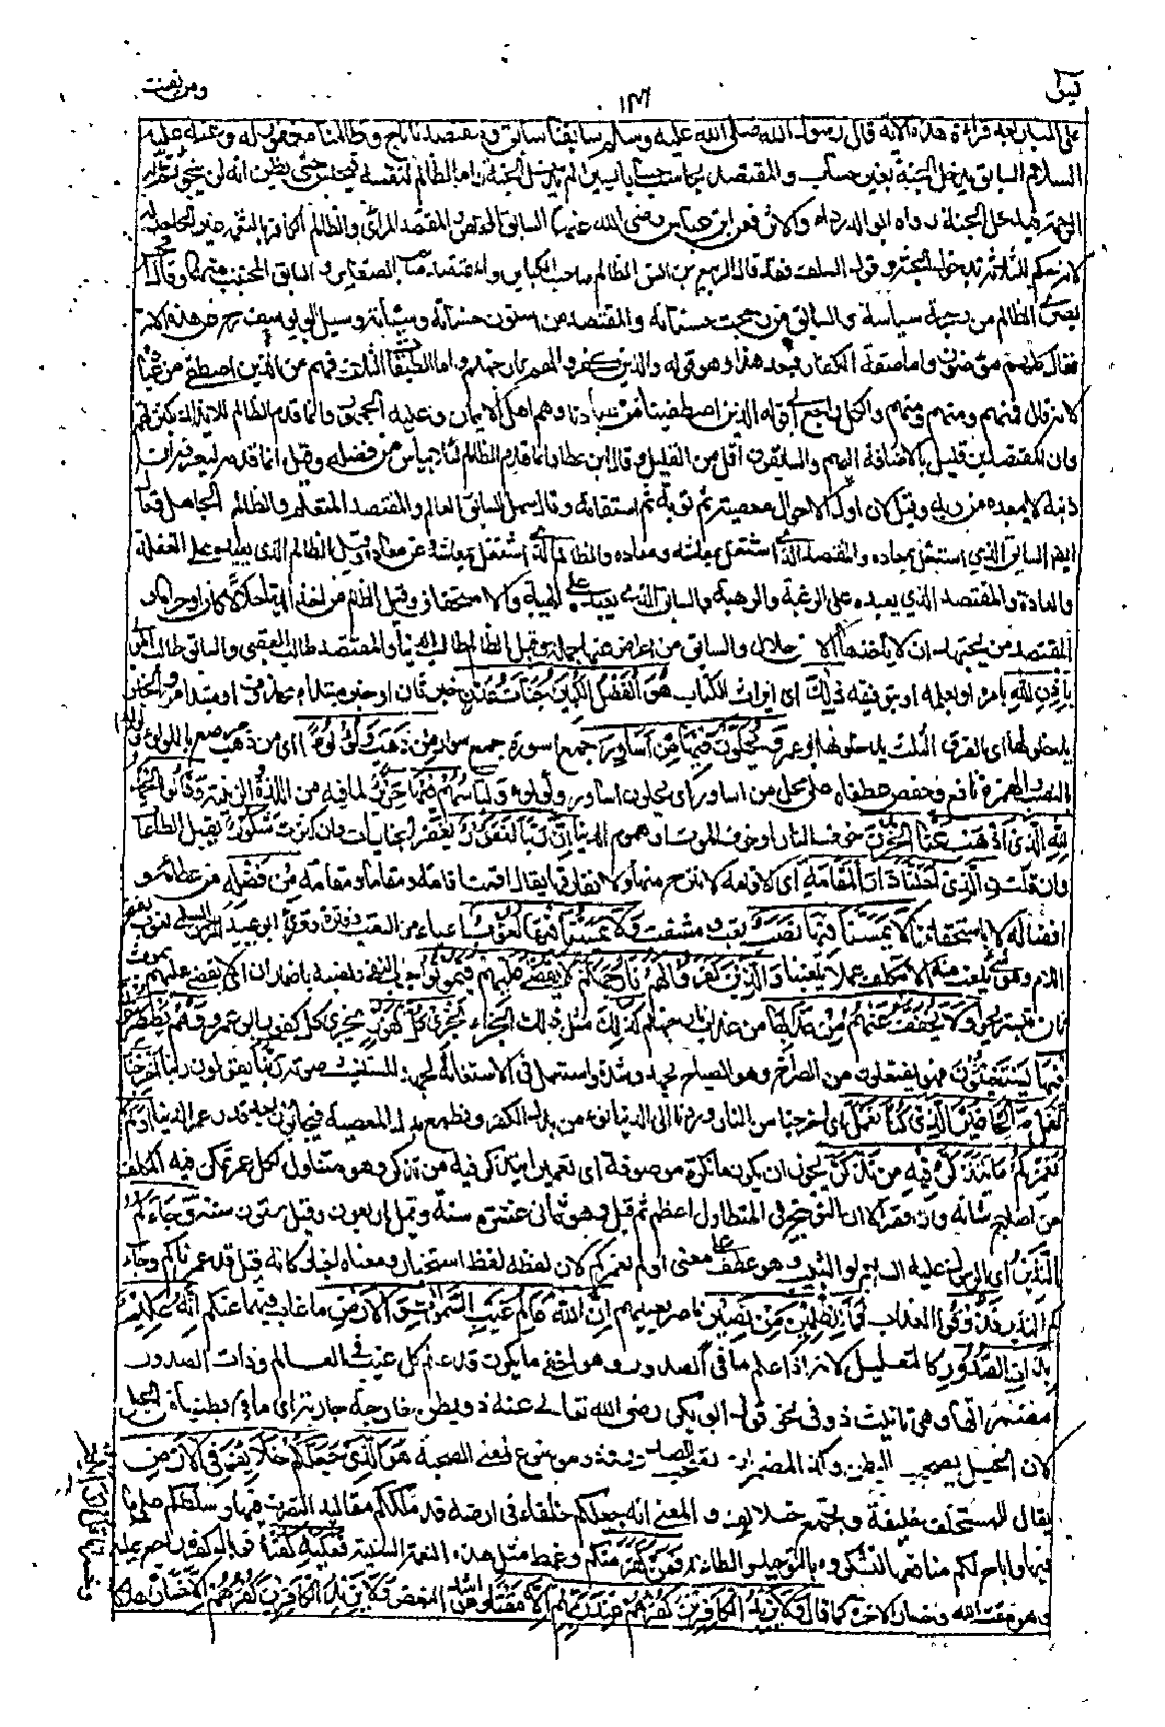 ومن يقنت
على المنبر بعد قراءة هذه الآية قال رسول الله صلى الله عليه وسلم سابقنا سابق ومقتصدنا ناج وظالمنا مغفور له وعنه عليه
السلام السابق يدخل الجنة بغير حساب والمقتصد يحاسب حسابا يسيرا ثم يدخل الجنة واما الظالم لنفسه فيحبس حتى يظن انه لن ينجو
الجنة رواه ابو الدرداء والاثر فعن ابن عباس رضى الله عنهما السابق المخلص والمقتصد المرائى والظالم الكافر بالنعمة غير الجاحد لها
لانه حكم للثلاثة بدخول الجنة وقول السلف فقد قال الربيع بن انس الظالم صاحب الكبائر والمقتصد صاحب الصغائر والسابق المجتنب لهما وقال
الظالم من والسابق من رجحت حسناته والمقتصد من استوت حسناته وسيئاته وسئل ابو يوسف رحمه الله عن هذه الآية
فقال كلهم مؤمنون واما صفة الكفار فبعد هذا وهو قوله والذين كفروا لهم نار جهنم واما الطبقات الثلاث فهم من الذين اصطفى من عباده
لانه قال فمنهم ومنهم ومنهم والكل راجع الى قوله الذين اصطفينا من عبادنا وهم اهل الايمان وعليه الجمهور وانما قدم الظالم للايذان بكثرتهم
وان المقتصدين قليل بالاضافة اليهم والسابقون اقل من القليل وقال ابن عطاء انما قدم الظالم لئلا ييأس من فضله وقيل انما قدمه ليعرفه ان
ذنبه لا يبعده من ربه وقيل لان اول الاحوال معصية ثم توبة ثم استقامة وقال سهل السابق العالم والمقتصد المتعلم والظالم الجاهل وقال
ايضا السابق الذى اشتغل بمعاده والمقتصد الذى اشتغل بمعاشه ومعاده والظالم الذى اشتغل بمعاشه عن معاده وقيل الظالم الذى يعبده على الغفلة
والعادة والمقتصد الذى يعبده على الرغبة والرهبة والسابق الذى يعبده على الهيبة والاستحقاق وقيل الظالم من اخذ الدنيا حلالا كان او حراما
والمقتصد من يجتهد ان لا يأخذها الا من حلال والسابق من اعرض عنها جملة وقيل الظالم طالب الدنيا والمقتصد طالب العقبى والسابق طالب المولى
باذن الله بامره او بعلمه او بتوفيقه ذلك اى ايراث الكتاب هو الفضل الكبير جنات عدن خبر ثان او خبر مبتدأ محذوف او مبتدأ والخبر
يدخلونها اى الفرق الثلث يدخلونها ابو عمرو يحلون فيها من اساور جمع اسورة جمع سوار من ذهب ولؤلؤا اى من ذهب مرصع باللؤلؤ
بالنصب والهمزة نافع وحفص عطفا على محل من اساور اى يحلون اساور ولؤلؤا ولباسهم فيها حرير لما فيه من اللذة والزينة وقالوا الحمد
لله الذى اذهب عنا الحزن خوف النار او خوف الموت او هموم الدنيا ان ربنا لغفور يغفر الجنايات وان كثرت شكور يقبل الطاعات
وان قلت الذى احلنا دار المقامة اى الاقامة لا نبرح منها ولا نفارقها يقال اقمت اقامة ومقاما ومقامة من فضله من عطائه و
افضاله لا باستحقاقنا لا يمسنا فيها نصب تعب ومشقة ولا يمسنا فيها لغوب اعياء من التعب وفترة وقرأ ابو عبد الرحمن السلمى لغوب بفتح
اللام وهو شئ يلغب منه اى لا نتكلف عملا يلغبنا والذين كفروا لهم نار جهنم لا يقضى عليهم فيموتوا جواب النفى ونصبه باضمار ان اى لا يقضى عليهم بموت
ثان فيستريحوا ولا يخفف عنهم من عذابها من عذاب نار جهنم كذلك مثل ذلك الجزاء نجزى كل كفور يجزى كل كفور ابو عمرو وهم يصطرخون
فيها يستغيثون فهو يفتعلون من الصراخ وهو الصياح بجهد وشدة واستعمل فى الاستغاثة لجهد المستغيث صوته ربنا يقولون ربنا اخرجنا
نعمل صالحا غير الذى كنا نعمل اى اخرجنا من النار وردنا الى الدنيا نؤمن بدل الكفر ونطع بدل المعصية فيجابون بعد قدر عمر الدنيا اولم
نعمركم ما يتذكر فيه من تذكر يجوز ان يكون ما نكرة موصوفة اى تعميرا يتذكر فيه من تذكر وهو متناول لكل عمر تمكن فيه المكلف
من اصلاح شانه وان قصر الا ان التوبيخ فى المتطاول اعظم ثم قيل هو ثمان عشرة سنة وقيل اربعون وقيل ستون سنة وجاءكم
النذير اى الرسول عليه السلام او الشيب وهو عطف على معنى اولم نعمركم لان لفظه لفظ استخبار ومعناه اخبار كانه قيل قد عمرناكم وجاءكم
النذير فذوقوا العذاب فما للظالمين من نصير ناصر يعينهم ان الله عالم غيب السموات والارض ما غاب فيهما عنكم انه عليم
بذات الصدور كالتعليل لانه اذا علم ما فى الصدور وهو اخفى ما يكون فقد علم كل غيب فى العالم وذات الصدور
مضمراتها وهى تانيث ذو فى نحو قول ابى بكر رضى الله تعالى عنه ذو بطن خارجة جارية اى ما فى بطنها من الحبل
لان الحبل يصحب البطن وكذا المضمرات تصحب الصدور وذو موضوع لمعنى الصحبة هو الذى جعلكم خلائف فى الارض
يقال للمستخلف خليفة ويجمع خلائف والمعنى انه جعلكم خلفاء فى ارضه قد ملككم مقاليد التصرف فيها وسلطكم على ما
فيها واباح لكم منافعها لتشكروه بالتوحيد والطاعة فمن كفر منكم وغمط مثل هذه النعمة السنية فعليه كفره فوبال كفره راجع عليه
وهو مقت الله وخسار الآخرة كما قال ولا يزيد الكافرين كفرهم عند ربهم الا مقتا وهو اشد البغض ولا يزيد الكافرين كفرهم الا خسارا هلاكا